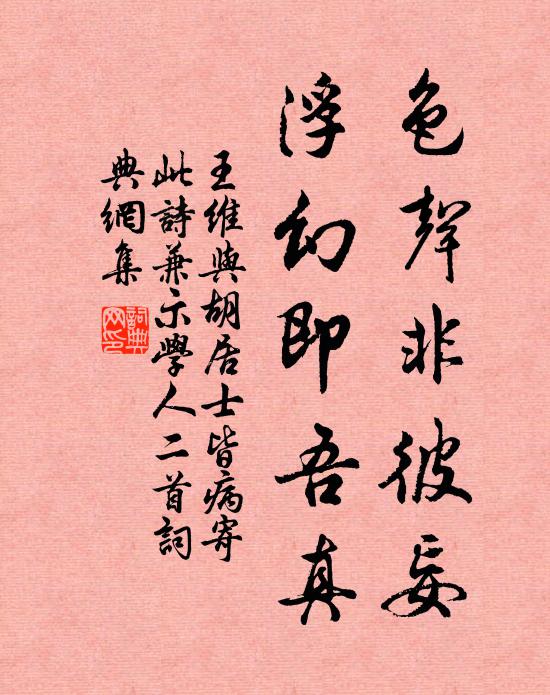 色聲非彼妄
浮幻即吾真
王維與胡居士皆病寄
此詩兼示學人二首詞
典網集
詞典
网印